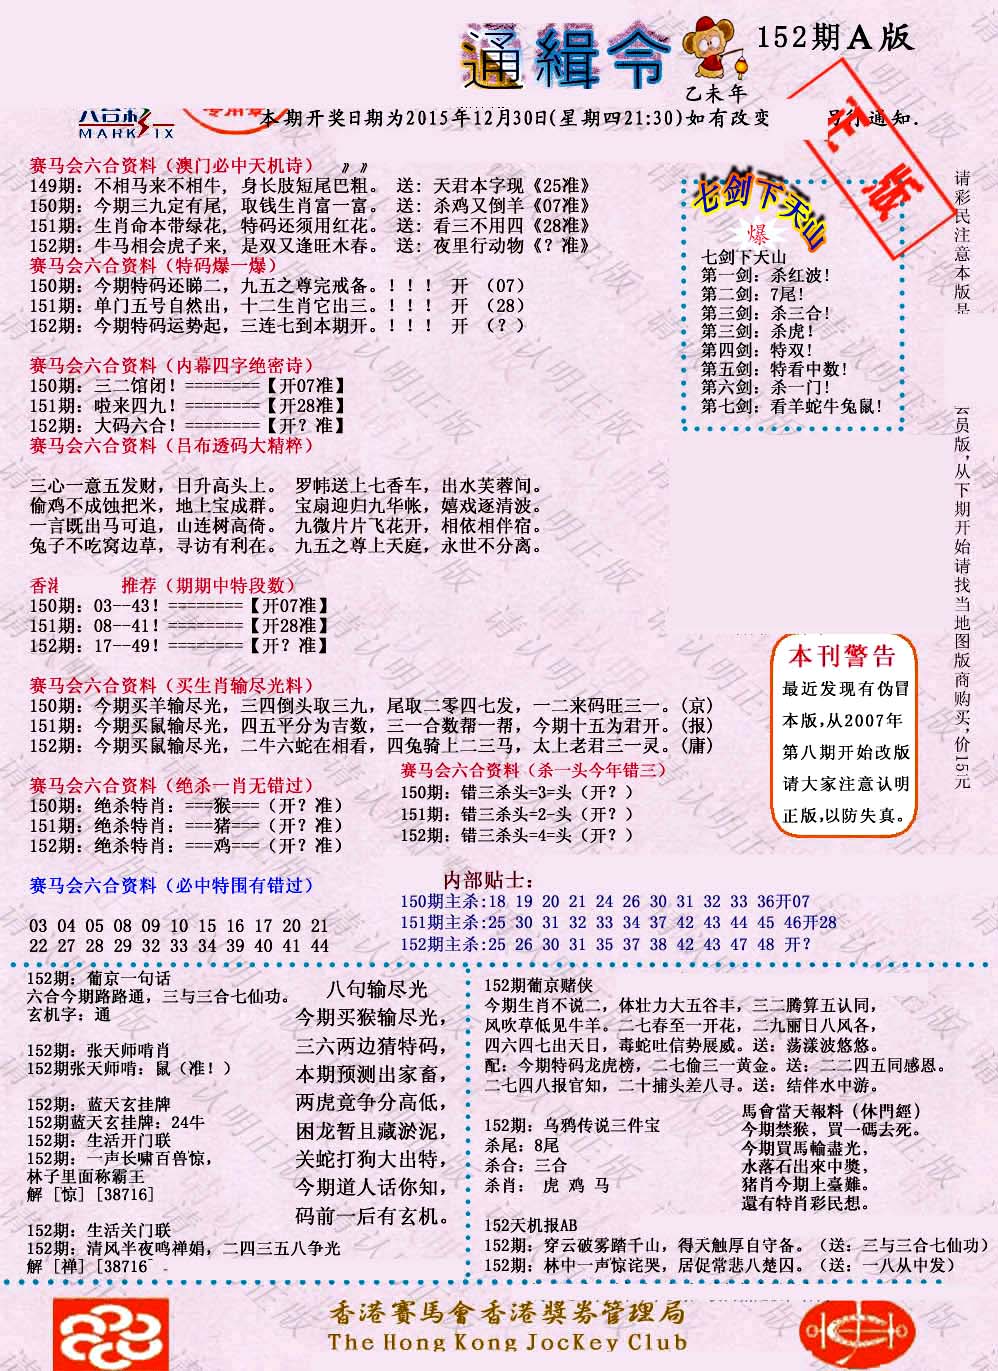 通緝令
152期A版
乙未年
六合彩
MARK SIX
专用章
本期开奖日期为2015年12月30日(星期四21:30)如有改变 另行通知.
赛马会六合资料（澳门必中天机诗） 》》
149期：不相马来不相牛，身长肢短尾巴粗。 送：天君本字现《25准》
150期：今期三九定有尾，取钱生肖富一富。 送：杀鸡又倒羊《07准》
151期：生肖命本带绿花，特码还须用红花。 送：看三不用四《28准》
152期：牛马相会虎子来，是双又逢旺木春。 送：夜里行动物《？准》
赛马会六合资料（特码爆一爆）
150期：今期特码还睇二，九五之尊完戒备。！！！ 开 （07）
151期：单门五号自然出，十二生肖它出三。！！！ 开 （28）
152期：今期特码运势起，三连七到本期开。！！！ 开 （？）
赛马会六合资料（内幕四字绝密诗）
150期：三二馆闭！========【开07准】
151期：啦来四九！========【开28准】
152期：大码六合！========【开？准】
赛马会六合资料（吕布透码大精粹）
三心一意五发财，日升高头上。 罗帏送上七香车，出水芙蓉间。
偷鸡不成蚀把米，地上宝成群。 宝扇迎归九华帐，嬉戏逐清波。
一言既出马可追，山连树高倚。 九微片片飞花开，相依相伴宿。
兔子不吃窝边草，寻访有利在。 九五之尊上天庭，永世不分离。
七剑下天山
爆
七剑下天山
第一剑：杀红波！
第二剑：7尾！
第三剑：杀三合！
第三剑：杀虎！
第四剑：特双！
第五剑：特看中数！
第六剑：杀一门！
第七剑：看羊蛇牛兔鼠！
请彩民注意本版是
会员版，从下期开始请找当地图版商购买，价15元
香港 推荐（期期中特段数）
150期：03--43！========【开07准】
151期：08--41！========【开28准】
152期：17--49！========【开？准】
赛马会六合资料（买生肖输尽光料）
150期：今期买羊输尽光，三四倒头取三九，尾取二零四七发，一二来码旺三一。(京)
151期：今期买鼠输尽光，四五平分为吉数，三一合数帮一帮，今期十五为君开。(报)
152期：今期买鼠输尽光，二牛六蛇在相看，四兔骑上二三马，太上老君三一灵。(庸)
本刊警告
最近发现有伪冒
本版,从2007年
第八期开始改版
请大家注意认明
正版,以防失真。
赛马会六合资料（绝杀一肖无错过）
150期：绝杀特肖：===猴===（开？准）
151期：绝杀特肖：===猪===（开？准）
152期：绝杀特肖：===鸡===（开？准）
赛马会六合资料（杀一头今年错三）
150期：错三杀头=3=头（开？）
151期：错三杀头=2-头（开？）
152期：错三杀头=4=头（开？）
赛马会六合资料（必中特围有错过）
03 04 05 08 09 10 15 16 17 20 21
22 27 28 29 32 33 34 39 40 41 44
内部贴士：
150期主杀:18 19 20 21 24 26 30 31 32 33 36开07
151期主杀:25 30 31 32 33 34 37 42 43 44 45 46开28
152期主杀:25 26 30 31 35 37 38 42 43 47 48 开?
152期：葡京一句话
六合今期路路通，三与三合七仙功。
玄机字：通
152期：张天师啃肖
152期张天师啃：鼠（准！）
152期：蓝天玄挂牌
152期蓝天玄挂牌：24牛
152期：生活开门联
152期：一声长啸百兽惊，
林子里面称霸王
解 [惊] [38716]
152期：生活关门联
152期：清风半夜鸣禅娟，二四三五八争光
解 [禅] [38716
八句输尽光
今期买猴输尽光，
三六两边猜特码，
本期预测出家畜，
两虎竟争分高低，
困龙暂且藏淤泥，
关蛇打狗大出特，
今期道人话你知，
码前一后有玄机。
152期葡京赌侠
今期生肖不说二，体壮力大五谷丰，三二腾算五认同，
风吹草低见牛羊。二七春至一开花，二九丽日八风各，
四六四七出天日，毒蛇吐信势展威。送：荡漾波悠悠。
配：今期特码龙虎榜，二七偷三一黄金。送：二二四五同感恩。
二七四八报官知，二十捕头差八寻。送：结伴水中游。
152期：乌鸦传说三件宝
杀尾：8尾
杀合：三合
杀肖： 虎 鸡 马
馬會當天報料（休門經）
今期禁猴，買一碼去死。
今期買馬輸盡光，
水落石出來中獎，
猪肖今期上臺難。
還有特肖彩民想。
152天机报AB
152期：穿云破雾踏千山，得天触厚自守备。（送：三与三合七仙功）
152期：林中一声惊诧哭，居促常悲八楚囚。（送：一八从中发）
香港賽馬會香港獎券管理局
The Hong Kong Jockey Club